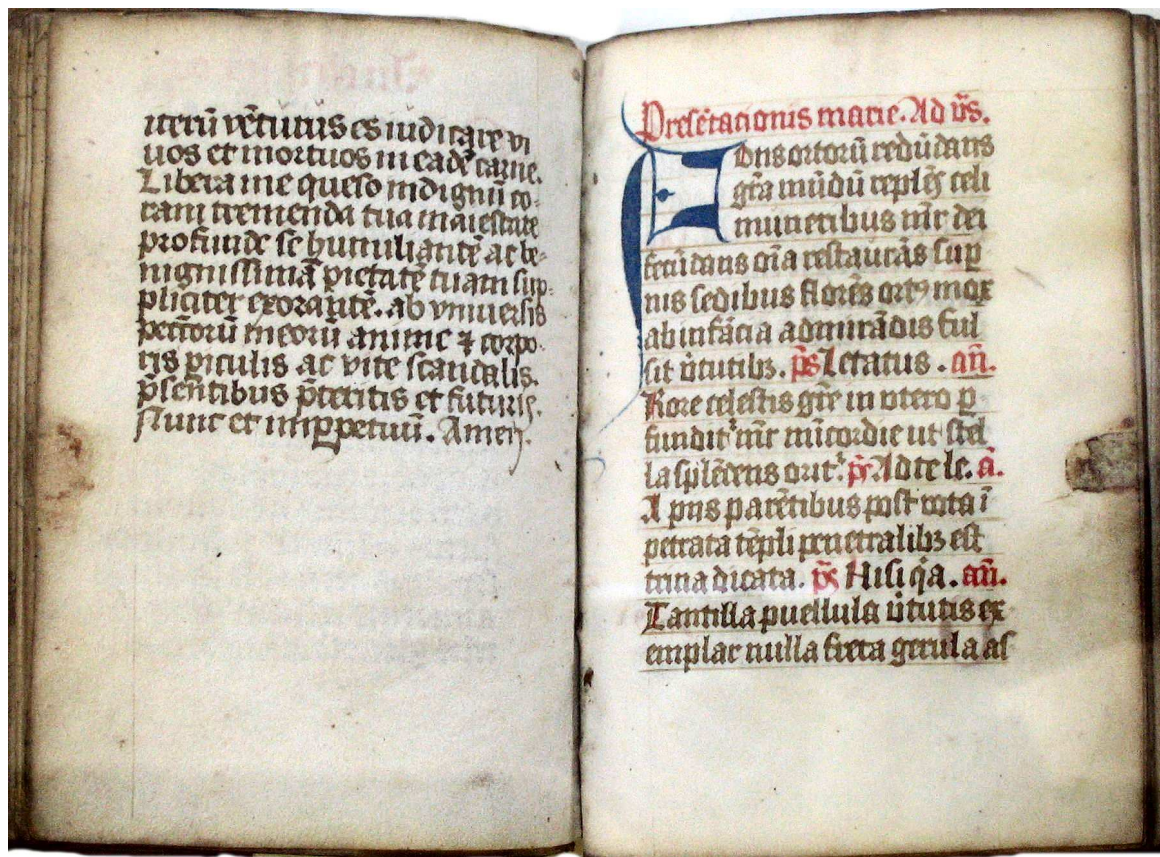 iterū vētūrus es iudicare vi
uos et mortuos in eadē carne.
Libera me queso indignū co-
ram tremenda tua maiestate
profunde se humiliantē ac be-
nignissimā pietatē tuam sup-
pliciter exorantē. ab vniuersis
pctōrū meorū anime ⁊ corpo-
ris ꝑiculis ac vite scandalis.
p̄sentibus p̄teritis et futuris.
Nunc et inꝑpetuū. Amen.
Presētacionis marie. Ad v̄s.
Fons ortorū redūdans
gr̄a mūdū replēs celi
muneribus mr̄ dei
fecūdans oīa restaurās suꝑ
nis sedibus flores ortꝰ mox
ab infācia admirādis ful
sit v̄tutibꝫ. p̄s Letatus. an̄.
Rore celestis gr̄e in vtero ꝑ
fundit᷑ mr̄ mīcordie ut stel
la splēdens orit᷑. p̄s Ad te le. ā.
A piis parētibus post vota ī
petrata tēpli penetralibꝫ est
trina dicata. p̄s Nisi q̄a. an̄.
Tantilla puellula v̄tutis ex
emplar nulla freta gerula as